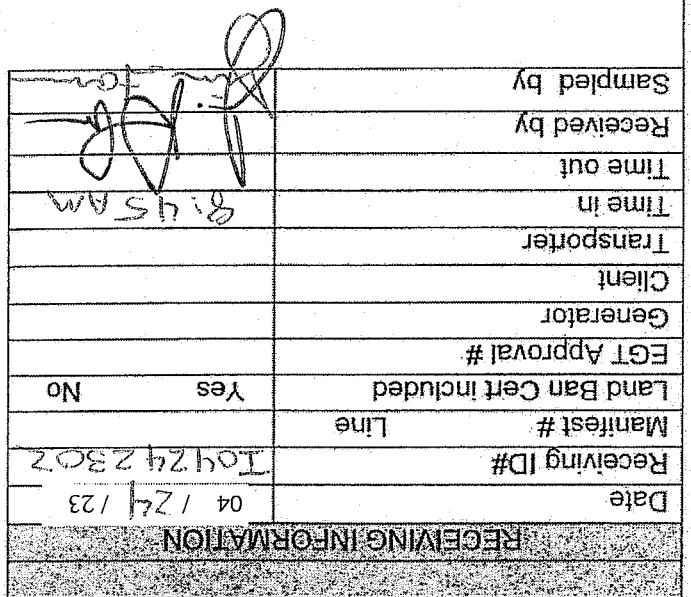 RECEIVING INFORMATION
Date 04 / 24 / 23
Receiving ID# I04242302
Manifest # Line
Land Ban Cert included Yes No
EGT Approval #
Generator
Client
Transporter
Time in 8:45 AM
Time out
Received by
Sampled by